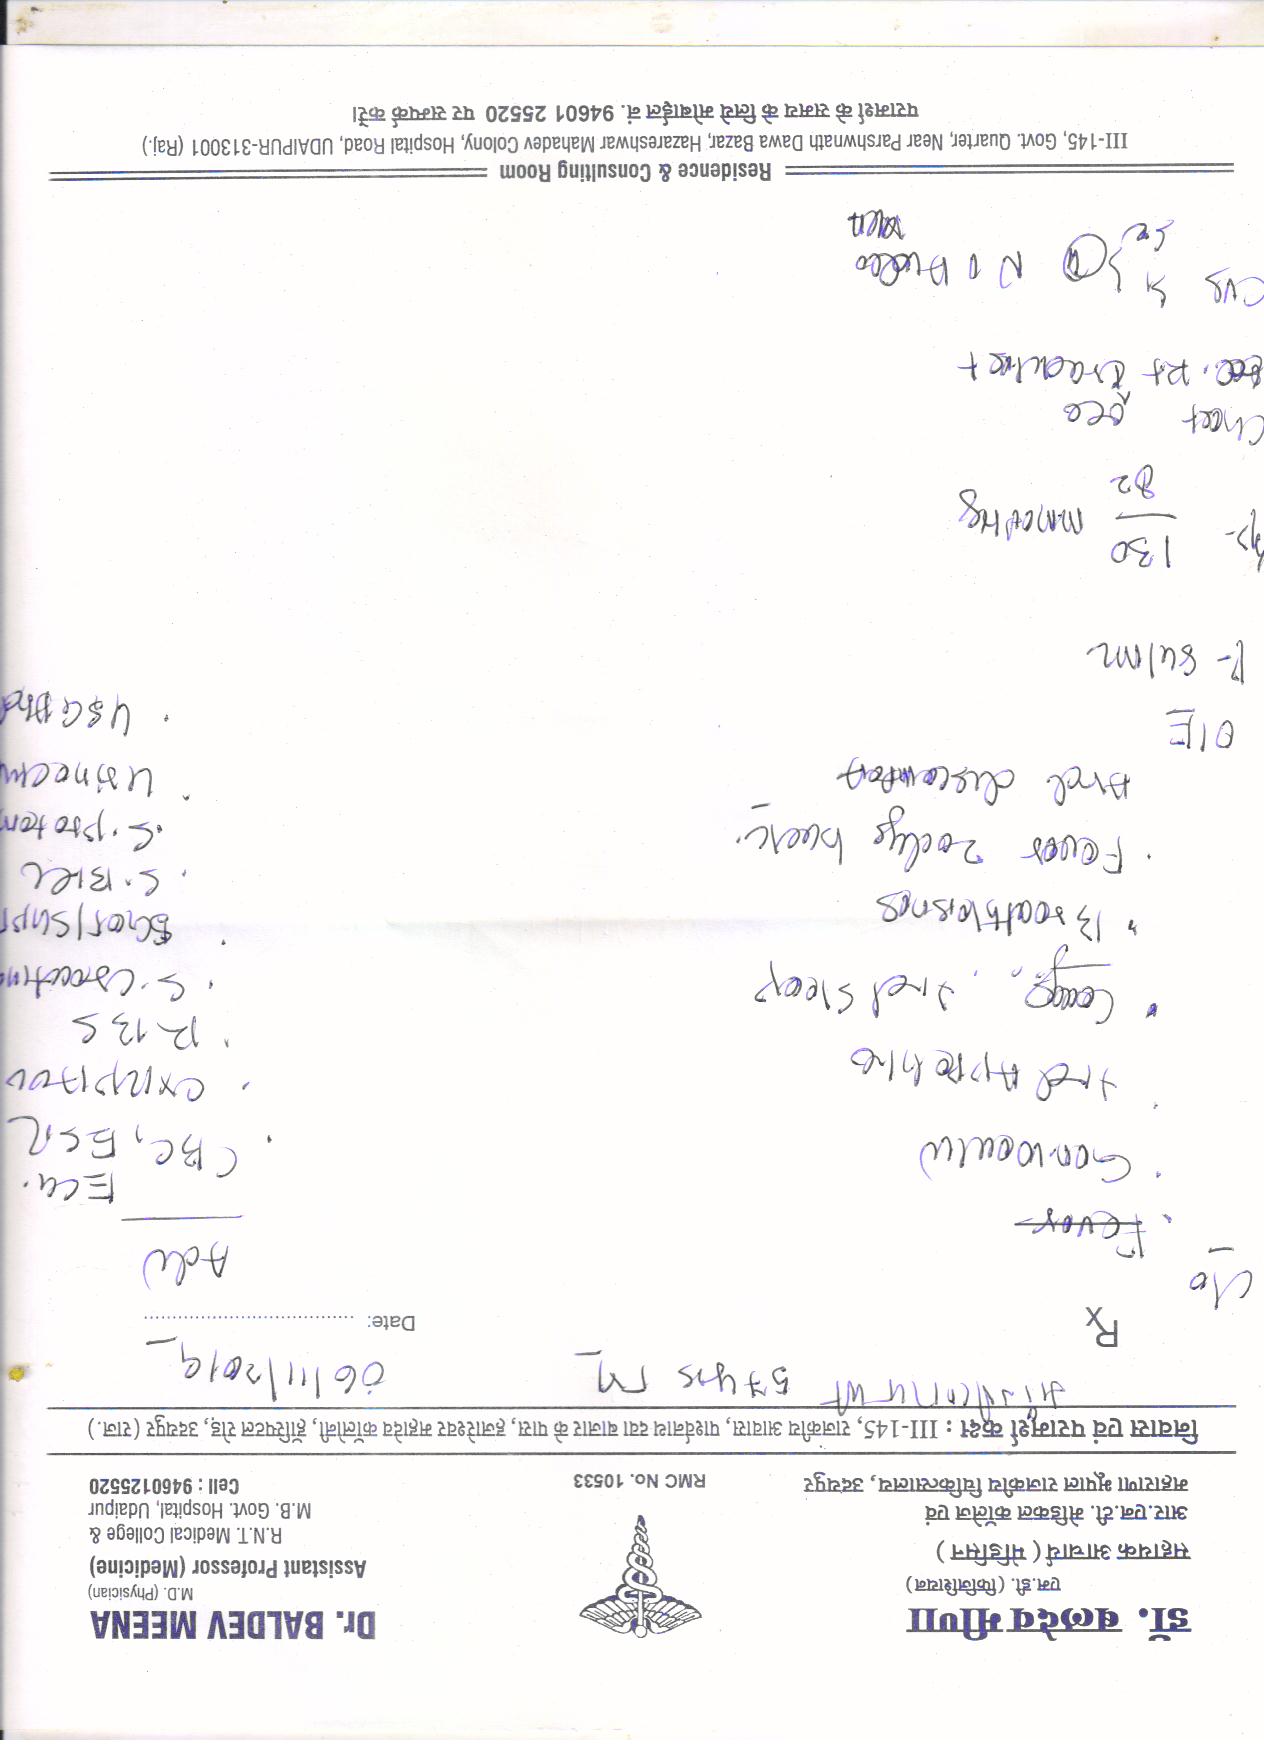 डॉ. बलदेव मीणा
एम.डी. (फिजिशियन)
सहायक आचार्य (मेडिसिन)
आर.एन.टी. मेडिकल कॉलेज एवं
महाराणा भूपाल राजकीय चिकित्सालय, उदयपुर
RMC No. 10533
Dr. BALDEV MEENA
M.D. (Physician)
Assistant Professor (Medicine)
R.N.T. Medical College &
M.B. Govt. Hospital, Udaipur
Cell : 9460125520
निवास एवं परामर्श कक्ष : III-145, राजकीय आवास, पार्श्वनाथ दवा बाजार के पास, हजारेश्वर महादेव कॉलोनी, हॉस्पिटल रोड़, उदयपुर (राज.)
57 yrs M
06/11/2019
Rx
Date:
C/o
Fever
Gen. weakn
↓ed Appetite
Cough, ↓ed sleep
Breathlessness
Fever 2 days back
Abd discomfort
O/E
P- 84/mn
130
82 mmHg
Chest
CVS S1
S2 } N
Adv
ECG.
CBC, ESR
RBS
S. Creatin
SGOT/SGPT
S. Bil
S. Protein
Urine
USG Abd
Residence & Consulting Room
III-145, Govt. Quarter, Near Parshwnath Dawa Bazar, Hazareshwar Mahadev Colony, Hospital Road, UDAIPUR-313001 (Raj.)
परामर्श के समय के लिये मोबाईल नं. 94601 25520 पर सम्पर्क करें।